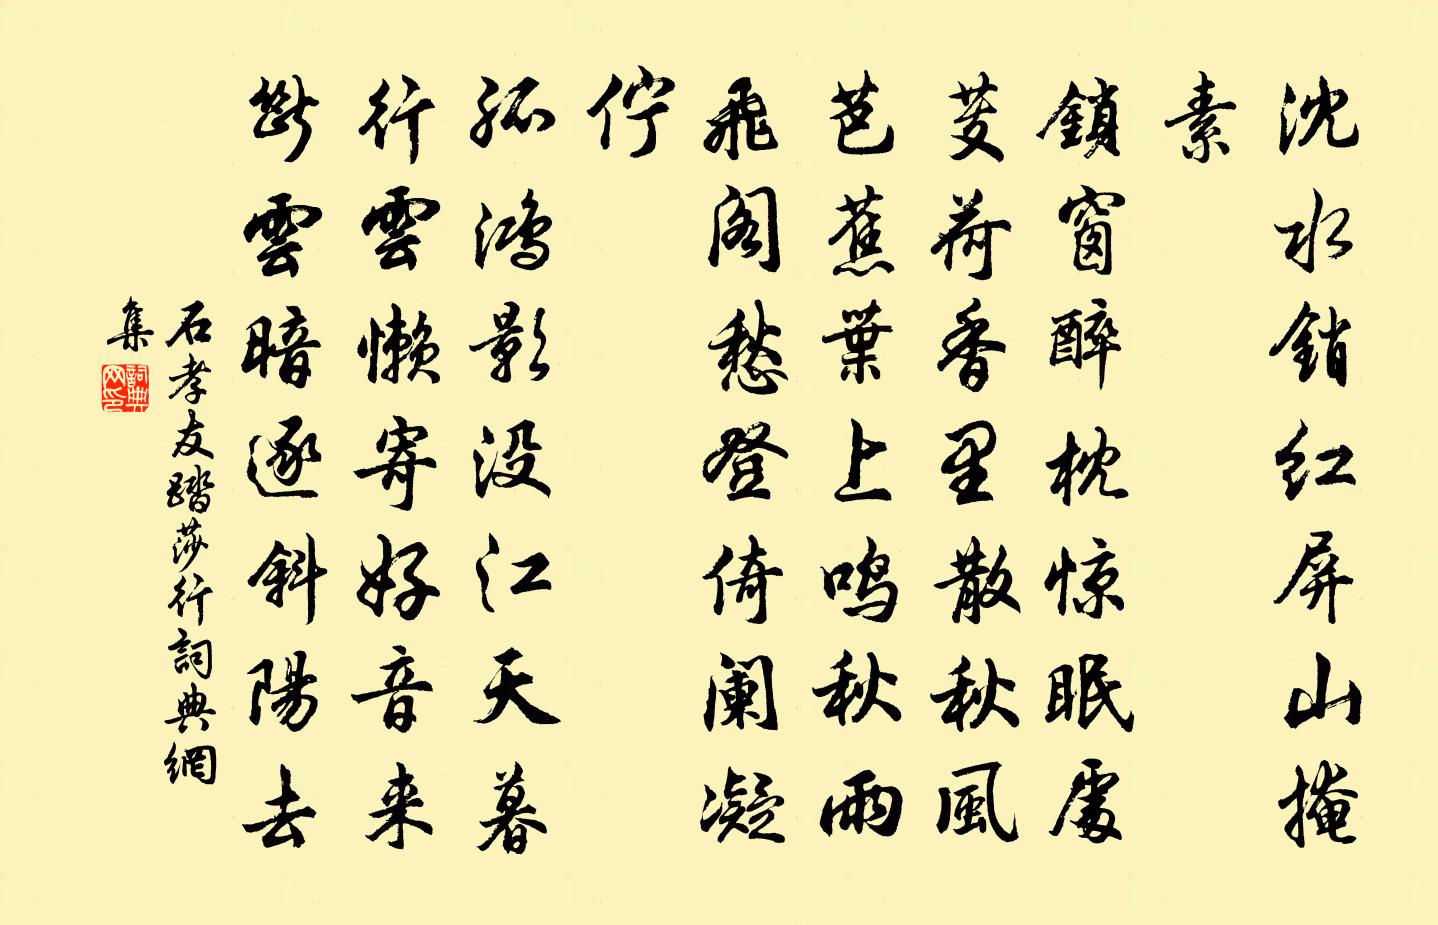 沈水銷红屏山掩
素
鎖窗醉枕惊眠處
芰荷香里散秋風
芭蕉葉上鸣秋雨
飛阁愁登倚阑凝
伫
孤鴻影没江天暮
行雲懒寄好音来
断雲暗逐斜陽去
石孝友踏莎行詞典網
集
詞典网印